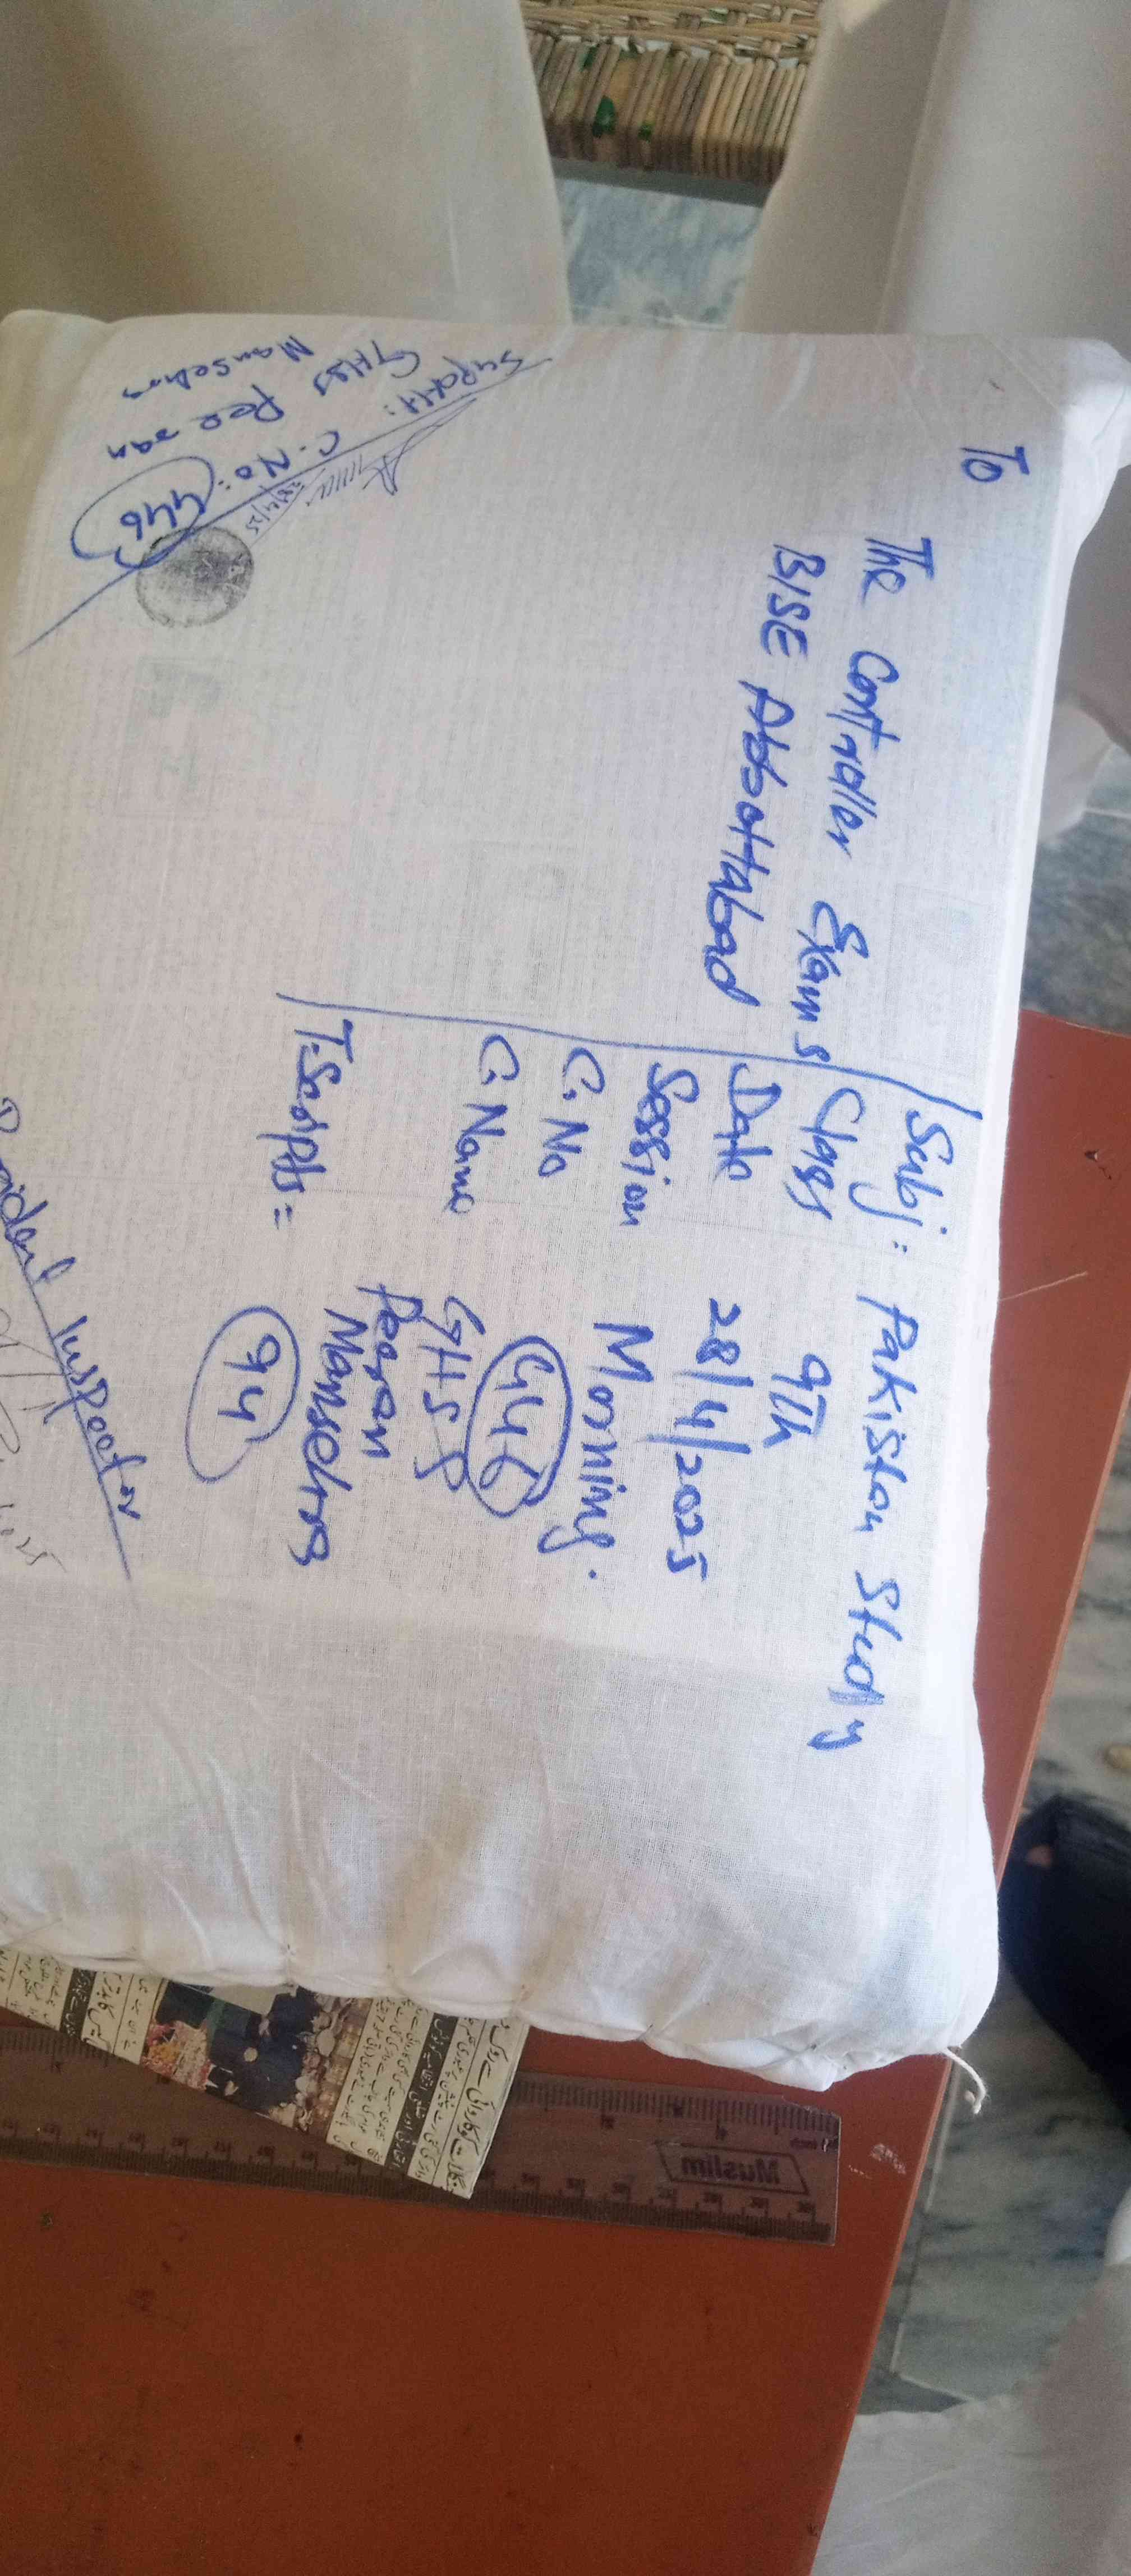 To
The Controller Exams
BISE Abbottabad
Subj: Pakistan Study
Class 9Th
Date 28/4/2025
Session Morning.
C. No 446
C. Name GHSS
Peeran
Mansehra
T. Scripts = 94
Supdtt:
GHSS Peeran
Mansehra
C. No: 446
28/4/25
Resident Inspector
Muslim